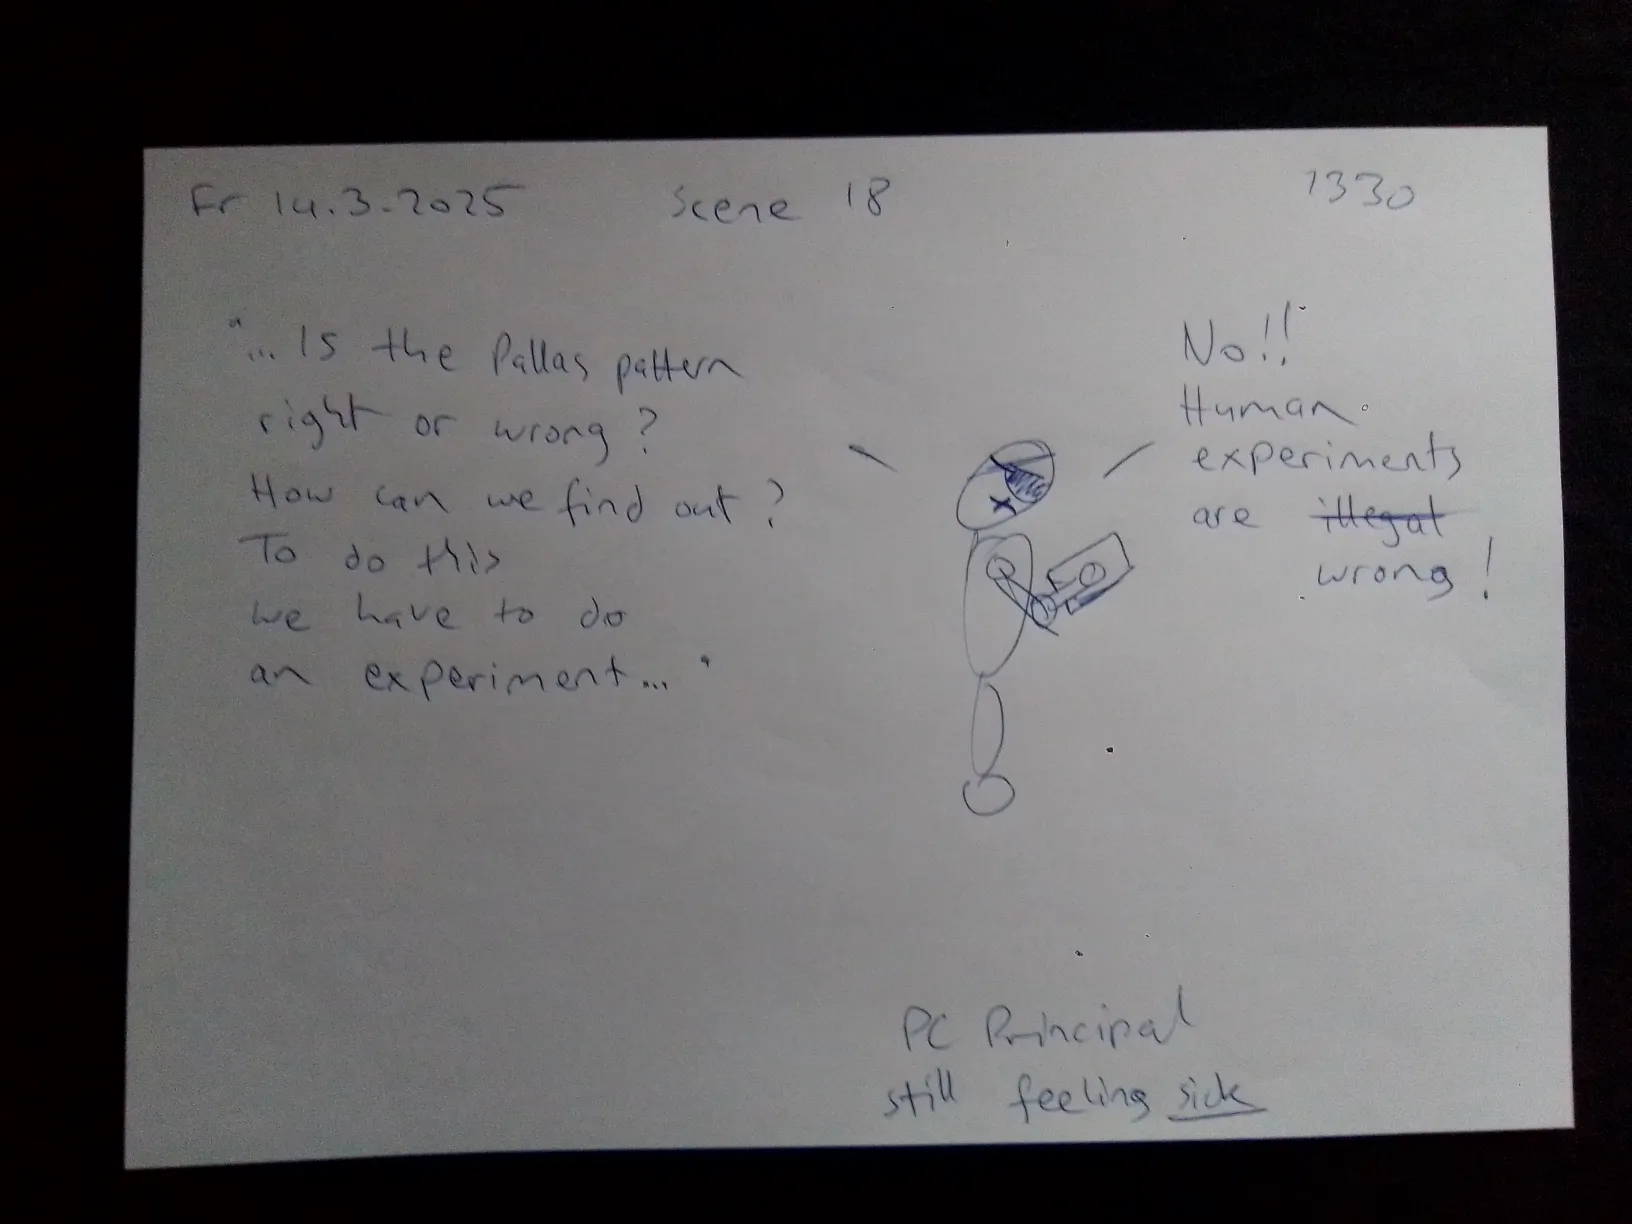 Fr 14.3.2025 Scene 18 1330
"...Is the Pallas pattern
right or wrong?
How can we find out?
To do this
we have to do
an experiment..."
No!!
Human
experiments
are illegal
wrong!
PC Principal
still feeling sick